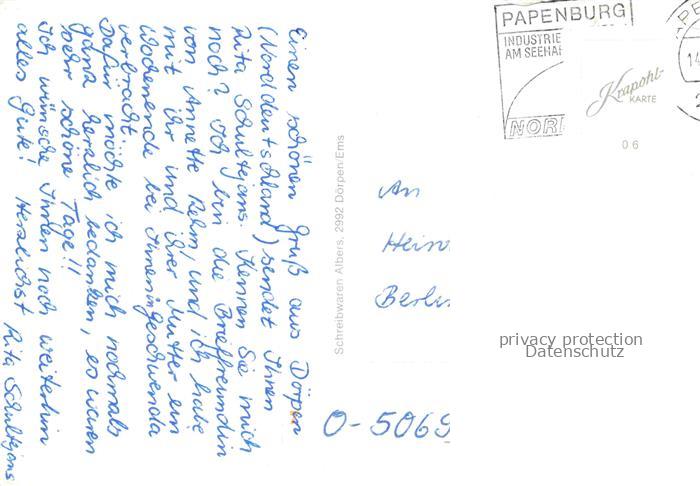 Einen schönen Gruß aus Dörpen
(Norddeutschland) sendet Ihnen
Rita Schultejans. Kennen Sie mich
noch? Ich bin die Brieffreundin
von Annette Rehm, und ich habe
mit ihr und ihrer Mutter ein
Wochenende bei Ihnen in
verbracht.
Dafür möchte ich mich nochmals
ganz herzlich bedanken, es waren
sehr schöne Tage!!
Ich wünsche Ihnen noch weiterhin
alles Gute! Herzlichst Rita Schultejans
Schreibwaren Albers, 2992 Dörpen/Ems
PAPENBURG
INDUSTRIE
AM SEEHAF
NOR
14
Krapohl-
KARTE
06
An
Hein
Berli
O-5069
privacy protection
Datenschutz